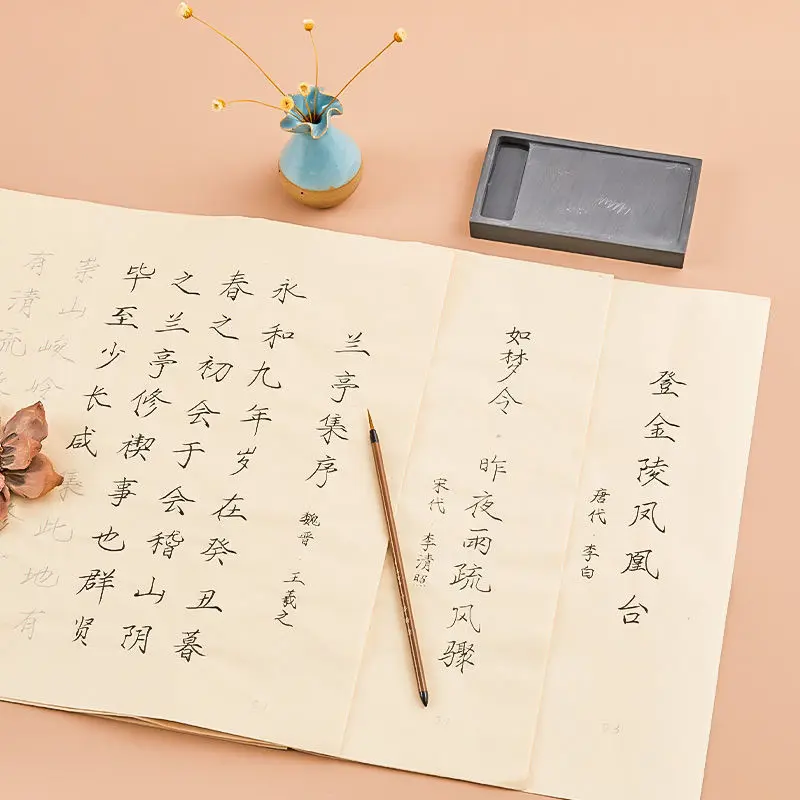 登金陵凤凰台
唐代·李白
如梦令·昨夜雨疏风骤
宋代·李清照
兰亭集序
魏晋 王羲之
永和九年岁在癸丑暮
春之初会于会稽山阴
之兰亭修禊事也群贤
毕至少长咸集此地有
崇山峻岭
有清流